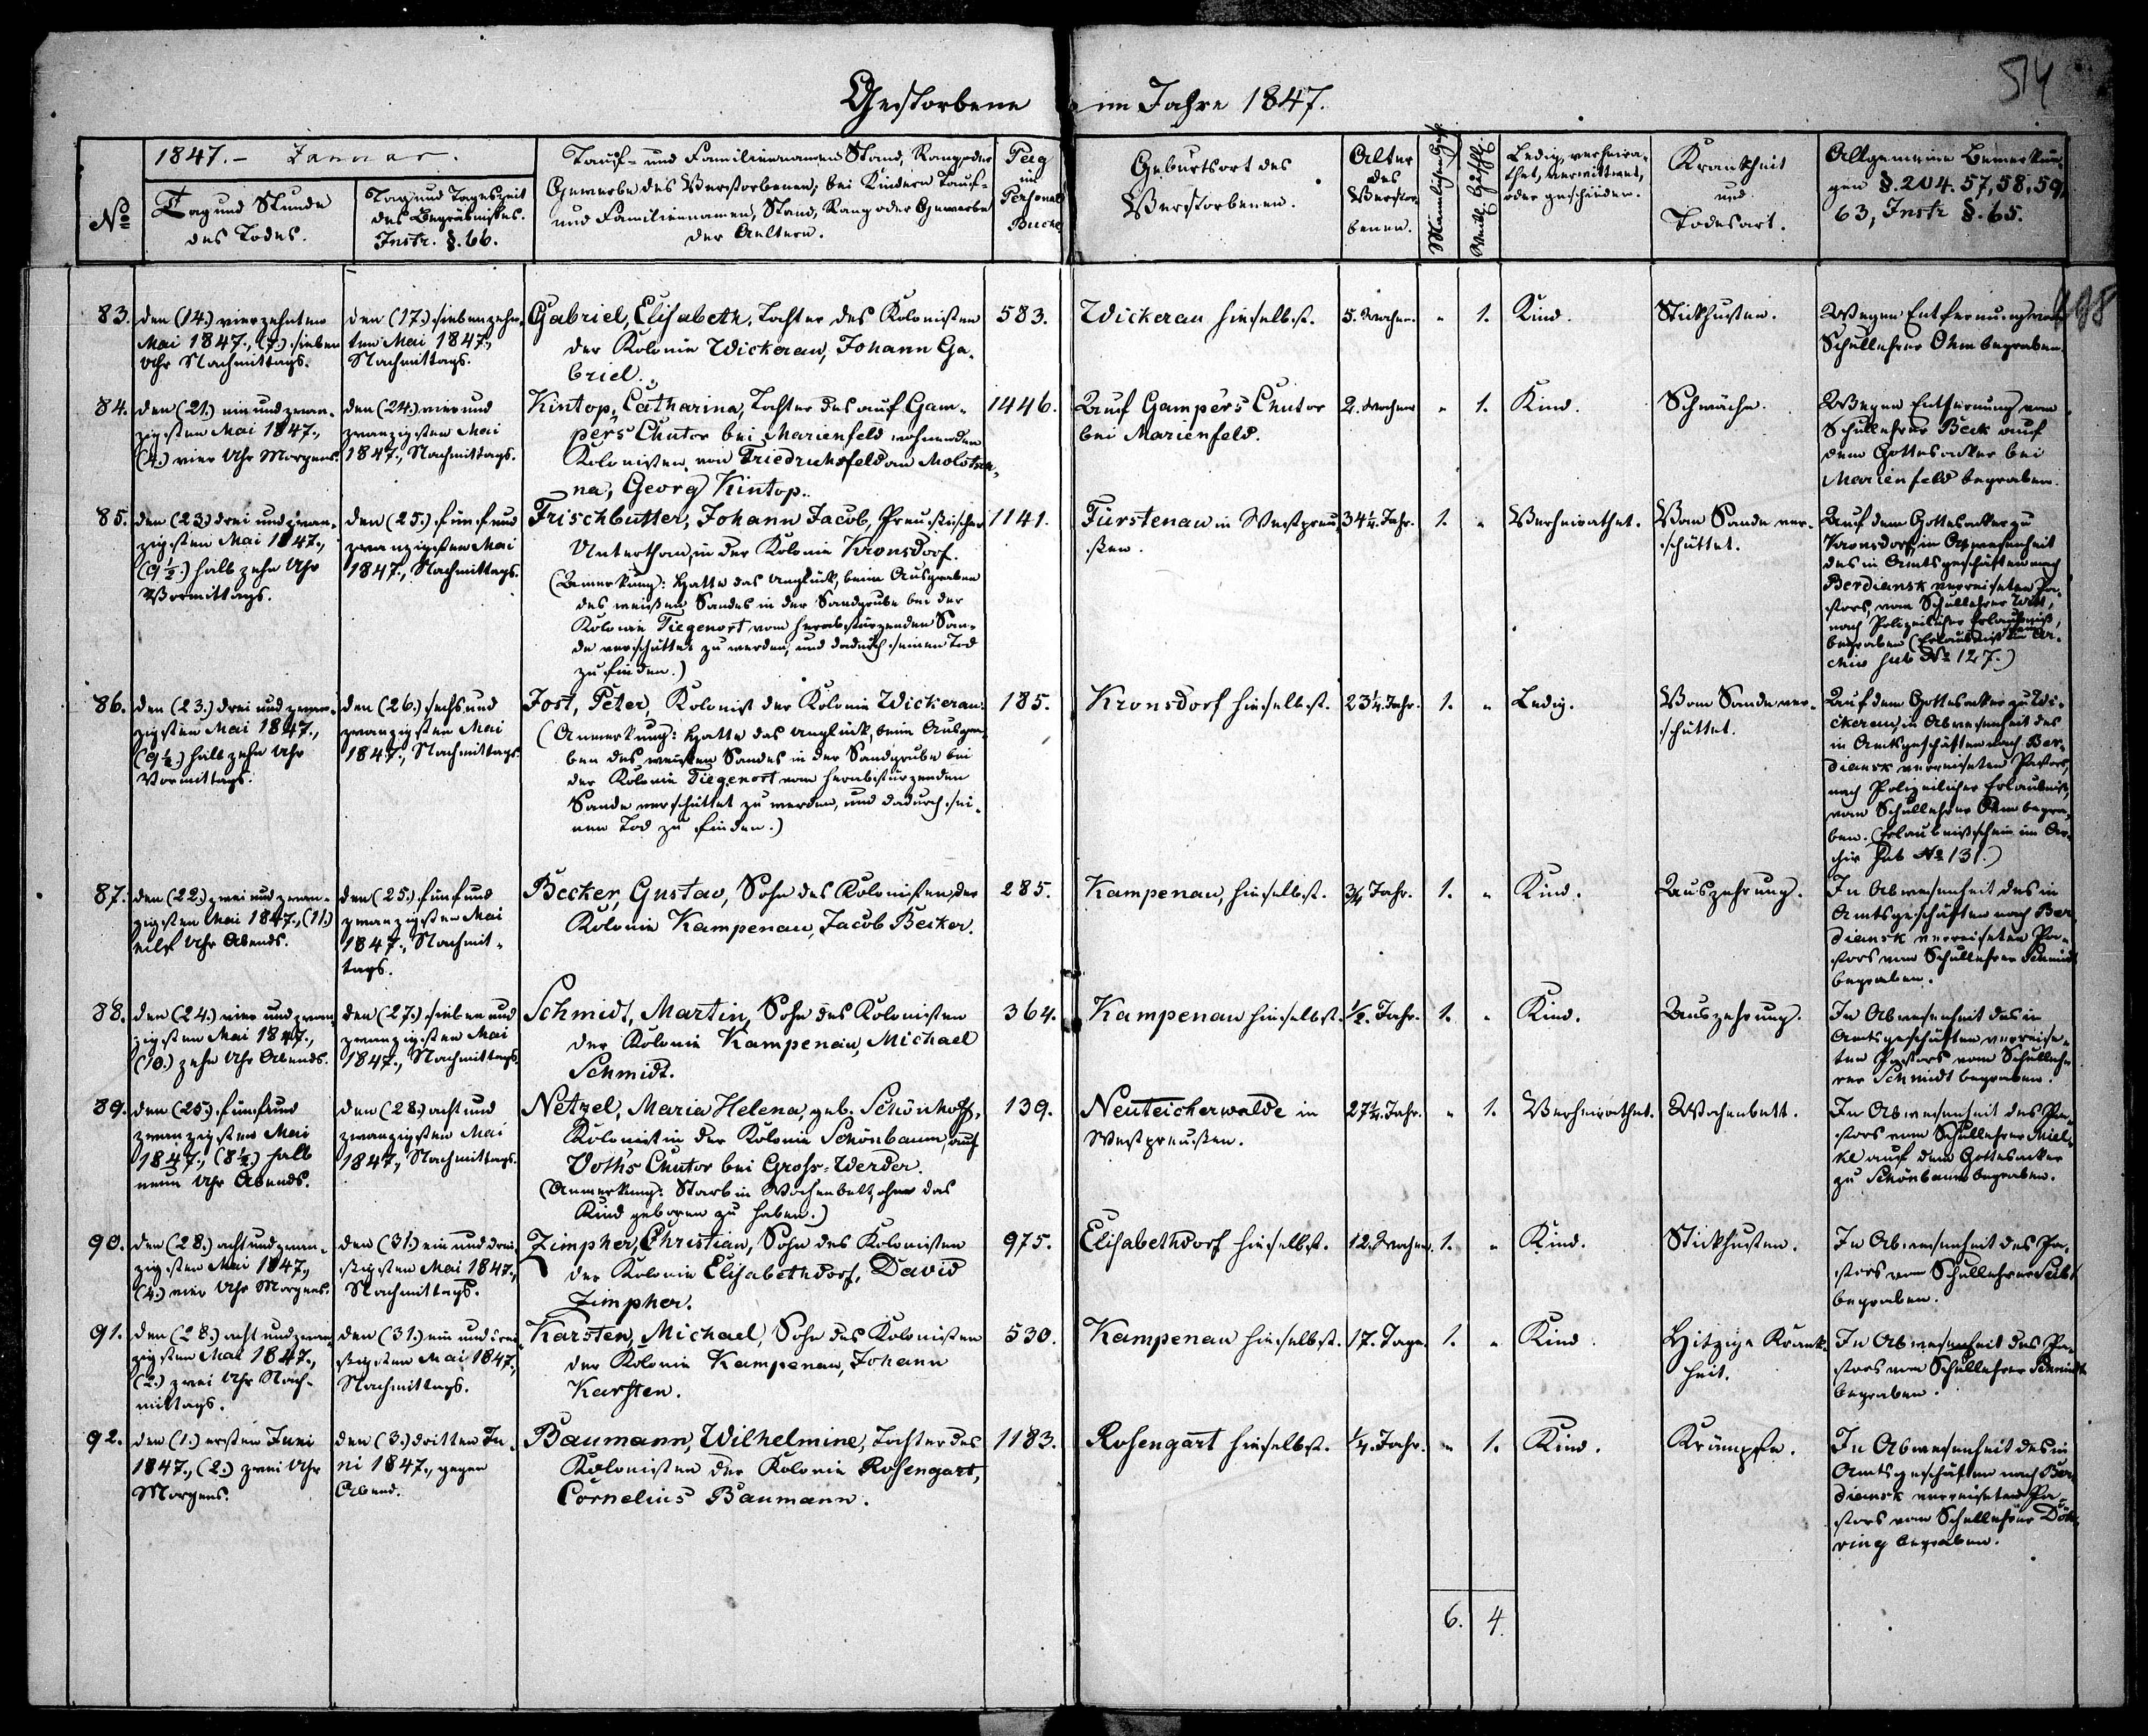 514
Gestorbene im Jahre 1847.
1847. - Januar.
No
Tag und Stunde
des Todes.
Tag und Tageszeit
des Begräbnisses.
Instr. §. 66.
Tauf- und Familiennamen, Stand, Rang oder
Gewerbe des Verstorbenen; bei Kindern Tauf-
und Familiennamen, Stand, Rang oder Gewerbe
der Aeltern.
Pag
im
Personal
Buche
Geburtsort des
Verstorbenen.
Alter
des
Verstor-
benen.
Männlichen Geschl.
Weibl. Geschl.
Ledig, verheira-
thet, verwittwet,
oder geschieden.
Krankheit
und
Todesart.
Allgemeine Bemerkun-
gen §. 204. 57, 58, 59,
63, Instr §. 65.
83.
den (14.) vierzehnten
Mai 1847., (7.) sieben
Uhr Nachmittags.
den (17.) siebenzehn-
ten Mai 1847.,
Nachmittags.
Gabriel, Elisabeth, Tochter des Kolonisten
der Kolonie Wickerau, Johann Ga-
briel.
583.
Wickerau hieselbst.
5. Wochen.
" 1.
Kind.
Stickhusten.
Wegen Entfernung vom
Schullehrer Ohm begraben.
84.
den (21.) ein und zwan-
zigsten Mai 1847.,
(4.) vier Uhr Morgens.
den (24.) vier und
zwanzigsten Mai
1847., Nachmittags.
Kintop, Catharina, Tochter des auf Gam-
pers Chutor bei Marienfeld wohnenden
Kolonisten von Friedrichsfeld an Molotsch-
na, Georg Kintop.
1446.
Auf Gampers Chutor
bei Marienfeld.
2. Wochen
" 1.
Kind.
Schwäche.
Wegen Entfernung vom
Schullehrer Beck auf
dem Gottesacker bei
Marienfeld begraben.
85.
den (23.) drei und zwan-
zigsten Mai 1847.,
(9½.) halb zehn Uhr
Vormittags.
den (25.) fünf und
zwanzigsten Mai
1847., Nachmittags.
Frischbutter, Johann Jacob, Preußischer
Unterthan, in der Kolonie Kronsdorf.
(Anmerkung: Hatte das Unglück, beim Ausgraben
des weißen Sandes in der Sandgrube bei der
Kolonie Tiegenort vom herabstürzenden San-
de verschüttet zu werden, und dadurch seinen Tod
zu finden.)
1141.
Fürstenau in Westpreu-
ßen.
34¼. Jahr.
1. "
Verheirathet.
Vom Sande ver-
schüttet.
Auf dem Gottesacker zu
Kronsdorf, in Abwesenheit
des in Amtsgeschäften nach
Berdiansk verreiseten Pa-
stors, vom Schullehrer
nach Polizeilicher Erlaubniß,
begraben (Erlaubnißschein im Ar-
chiv sub No 127.)
86.
den (23.) drei und zwan-
zigsten Mai 1847.,
(9½.) halb zehn Uhr
Vormittags.
den (26.) sechs und
zwanzigsten Mai
1847., Nachmittags.
Jost, Peter, Kolonist der Kolonie Wickerau.
(Anmerkung: Hatte das Unglück, beim Ausgra-
ben des weißen Sandes in der Sandgrube bei
der Kolonie Tiegenort vom herabstürzenden
Sande verschüttet zu werden, und dadurch sei-
nen Tod zu finden.)
185.
Kronsdorf hieselbst.
23¼. Jahr.
1. "
Ledig.
Vom Sande ver-
schüttet.
Auf dem Gottesacker zu Wi-
ckerau, in Abwesenheit des
in Amtsgeschäften nach Ber-
diansk verreiseten Pastors,
nach Polizeilicher Erlaubniß,
vom Schullehrer Ohm begra-
ben. (Erlaubnißschein im Ar-
chiv sub No 131.)
87.
den (22.) zwei und zwan-
zigsten Mai 1847., (11.)
eilf Uhr Abends.
den (25.) fünf und
zwanzigsten Mai
1847., Nachmit-
tags.
Becker, Gustav, Sohn des Kolonisten der
Kolonie Kampenau, Jacob Becker.
285.
Kampenau, hieselbst.
¾ Jahr.
1. "
Kind.
Auszehrung.
In Abwesenheit des in
Amtsgeschäften nach Ber-
diansk verreiseten Pa-
stors vom Schullehrer Schmidt
begraben.
88.
den (24.) vier und zwan-
zigsten Mai 1847.,
(10.) zehn Uhr Abends.
den (27.) sieben und
zwanzigsten Mai
1847., Nachmittags.
Schmidt, Martin, Sohn des Kolonisten
der Kolonie Kampenau, Michael
Schmidt.
364.
Kampenau hieselbst.
½. Jahr.
1. "
Kind.
Auszehrung.
In Abwesenheit des in
Amtsgeschäften verreise-
ten Pastors vom Schulleh-
rer Schmidt begraben.
89.
den (25.) fünf und
zwanzigsten Mai
1847., (8½.) halb
neun Uhr Abends.
den (28.) acht und
zwanzigsten Mai
1847., Nachmittags.
Netzel, Maria Helena, geb. Schönhoff,
Kolonistin der Kolonie Schönbaum, auf
Voth's Chutor bei Gross-Werder.
(Anmerkung: Starb in Wochenbett, ohne das
Kind geboren zu haben.)
139.
Neuteicherwalde in
Westpreußen.
27¼. Jahr.
" 1.
Verheirathet.
Wochenbett.
In Abwesenheit des Pa-
stors vom Schullehrer Miel-
ke auf dem Gottesacker
zu Schönbaum begraben.
90.
den (28.) acht und zwan-
zigsten Mai 1847.,
(4.) vier Uhr Morgens.
den (31.) ein und drei-
ßigsten Mai 1847.,
Nachmittags.
Zimpher, Christian, Sohn des Kolonisten
der Kolonie Elisabethdorf, David
Zimpher.
975.
Elisabethdorf hieselbst.
12. Wochen.
1. "
Kind.
Stickhusten.
In Abwesenheit des Pa-
stors vom Schullehrer Seib
begraben.
91.
den (28.) acht und zwan-
zigsten Mai 1847.,
(2.) zwei Uhr Nach-
mittags.
den (31.) ein und drei-
ßigsten Mai 1847.,
Nachmittags.
Karsten, Michael, Sohn des Kolonisten
der Kolonie Kampenau, Johann
Karsten.
530.
Kampenau hieselbst.
17. Tage.
1. "
Kind.
Hitzige Krank-
heit.
In Abwesenheit des Pa-
stors vom Schullehrer Schmidt
begraben.
92.
den (1.) ersten Juni
1847., (2.) zwei Uhr
Morgens.
den (3.) dritten Ju-
ni 1847., gegen
Abend.
Baumann, Wilhelmine, Tochter des
Kolonisten der Kolonie Rosengart,
Cornelius Baumann.
1183.
Rosengart hieselbst.
¼. Jahr.
" 1.
Kind.
Krämpfe.
In Abwesenheit des in
Amtsgeschäften nach Ber-
diansk verreiseten Pa-
stors vom Schullehrer Döh-
ring begraben.
6. 4.